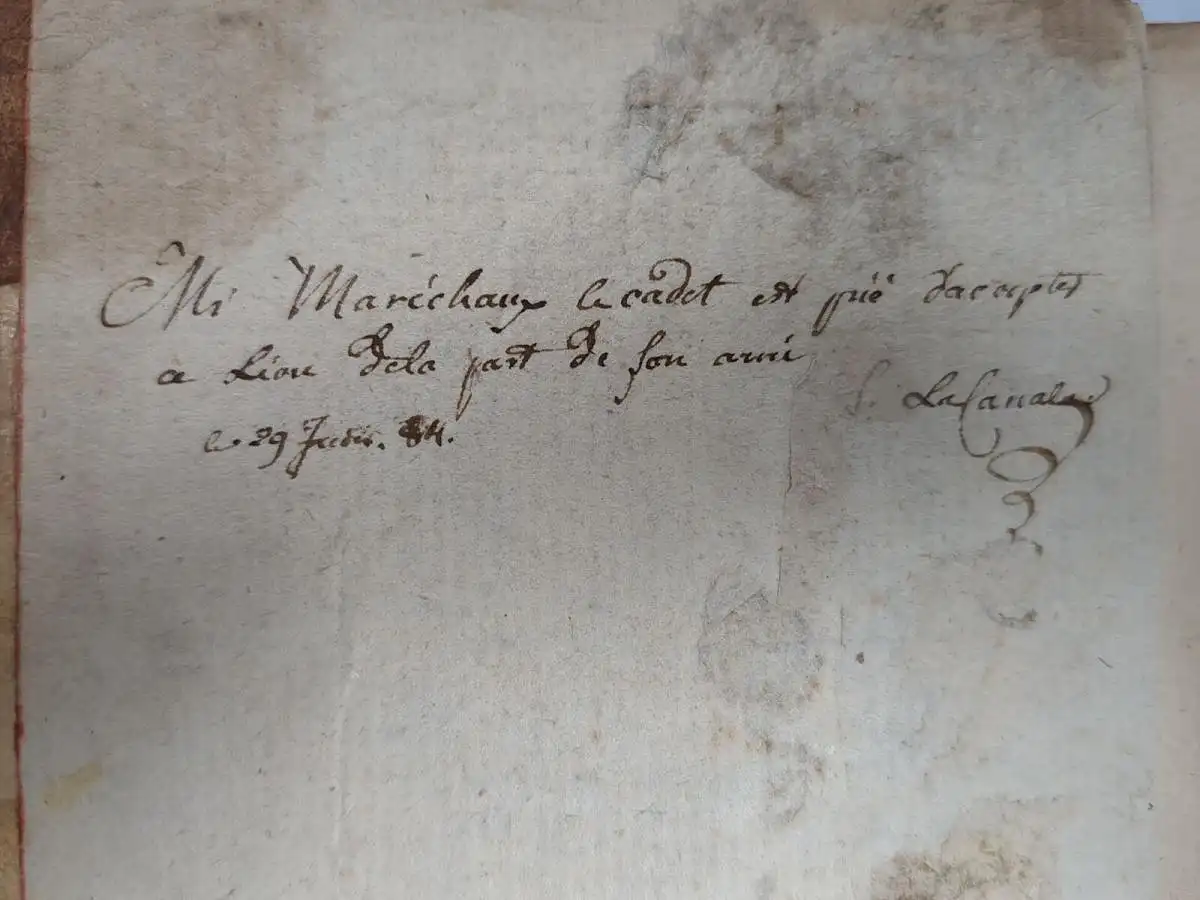 Mr Maréchaux le cadet est prié d'accepter
a Lion dela part de son ami
le 29 Janv. 84.
LaCanal